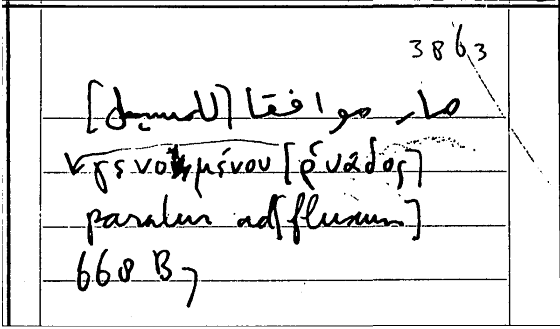 3863
صار موافقا [للمسيل]
γενομένου [ῥυάδος]
paratur ad [fluxum]
668 B 7